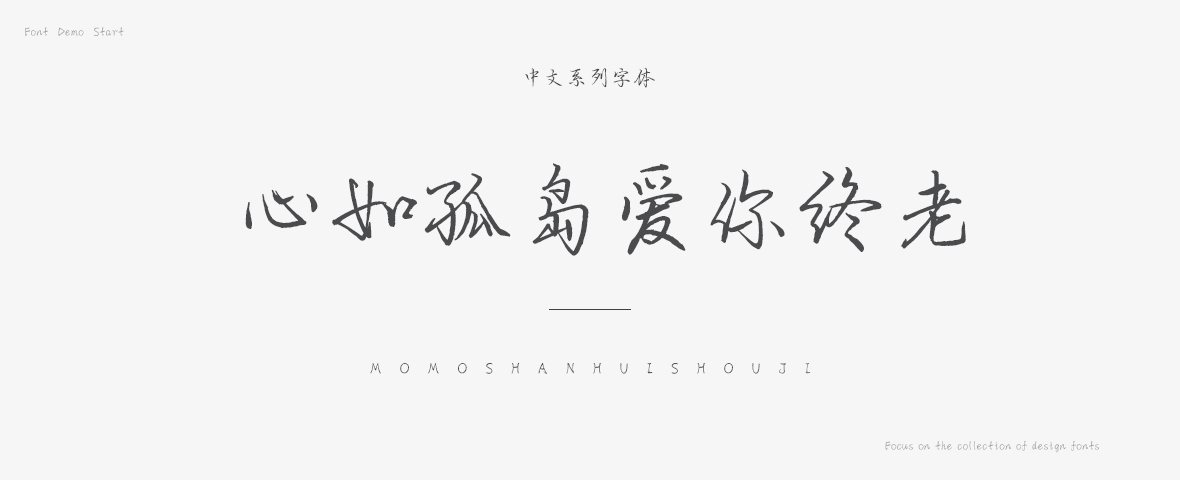 Font Demo Start
中文系列字体
心如孤岛爱你终老
MOMOSHANHUISHOUJI
Focus on the collection of design fonts